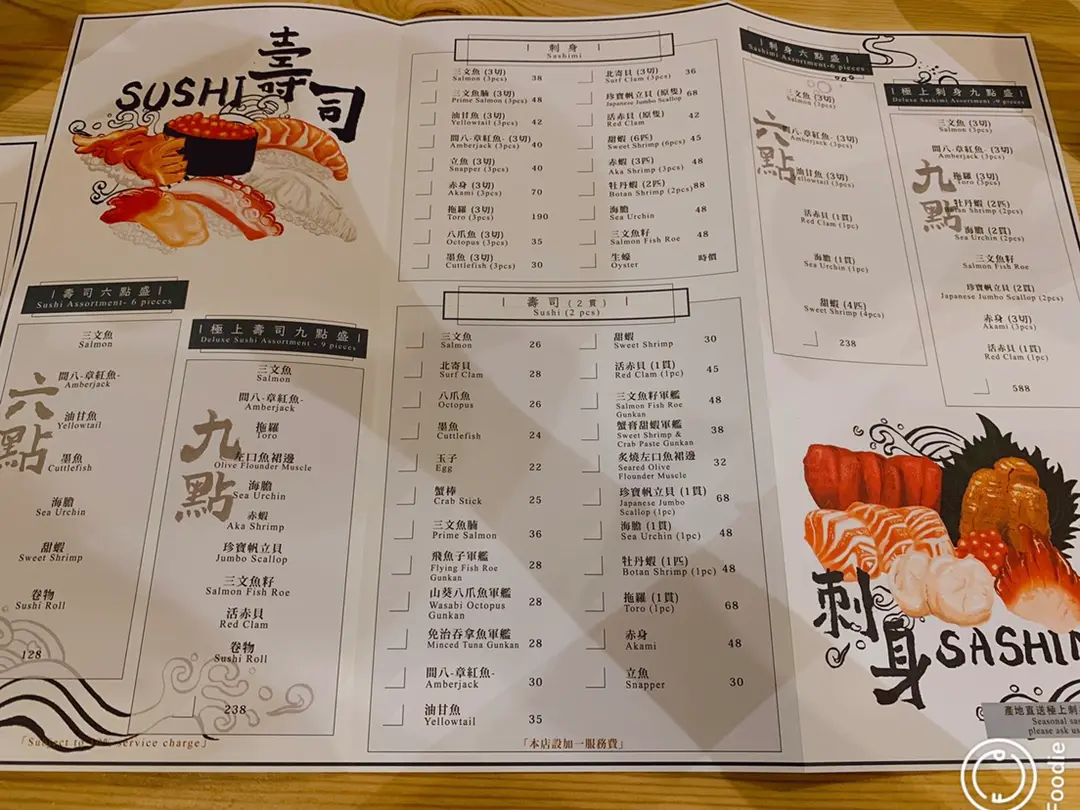 SUSHI 壽司
| 壽司六點盛 |
Sushi Assortment- 6 pieces
三文魚
Salmon
間八-章紅魚-
Amberjack
油甘魚
Yellowtail
墨魚
Cuttlefish
海膽
Sea Urchin
甜蝦
Sweet Shrimp
卷物
Sushi Roll
128
六點
| 極上壽司九點盛 |
Deluxe Sushi Assortment - 9 pieces
三文魚
Salmon
間八-章紅魚-
Amberjack
拖羅
Toro
左口魚裙邊
Olive Flounder Muscle
海膽
Sea Urchin
赤蝦
Aka Shrimp
珍寶帆立貝
Jumbo Scallop
三文魚籽
Salmon Fish Roe
活赤貝
Red Clam
卷物
Sushi Roll
238
九點
「Subject to service charge」
| 刺身 |
Sashimi
三文魚 (3切)
Salmon (3pcs) 38
三文魚腩 (3切)
Prime Salmon (3pcs) 48
油甘魚 (3切)
Yellowtail (3pcs) 42
間八-章紅魚- (3切)
Amberjack (3pcs) 40
立魚 (3切)
Snapper (3pcs) 40
赤身 (3切)
Akami (3pcs) 70
拖羅 (3切)
Toro (3pcs) 190
八爪魚 (3切)
Octopus (3pcs) 35
墨魚 (3切)
Cuttlefish (3pcs) 30
北寄貝 (3切)
Surf Clam (3pcs) 36
珍寶帆立貝 (原隻)
Japanese Jumbo Scallop 68
活赤貝 (原隻)
Red Clam 42
甜蝦 (6匹)
Sweet Shrimp (6pcs) 45
赤蝦 (3匹)
Aka Shrimp (3pcs) 48
牡丹蝦 (2匹)
Botan Shrimp (2pcs) 88
海膽
Sea Urchin 48
三文魚籽
Salmon Fish Roe 48
生蠔
Oyster 時價
| 壽司 (2貫) |
Sushi (2 pcs)
三文魚
Salmon 26
北寄貝
Surf Clam 28
八爪魚
Octopus 26
墨魚
Cuttlefish 24
玉子
Egg 22
蟹棒
Crab Stick 25
三文魚腩
Prime Salmon 36
飛魚子軍艦
Flying Fish Roe
Gunkan 28
山葵八爪魚軍艦
Wasabi Octopus
Gunkan 28
免治吞拿魚軍艦
Minced Tuna Gunkan 28
間八-章紅魚-
Amberjack 30
油甘魚
Yellowtail 35
甜蝦
Sweet Shrimp 30
活赤貝 (1貫)
Red Clam (1pc) 45
三文魚籽軍艦
Salmon Fish Roe
Gunkan 48
蟹膏甜蝦軍艦
Sweet Shrimp &
Crab Paste Gunkan 38
炙燒左口魚裙邊
Seared Olive
Flounder Muscle 32
珍寶帆立貝 (1貫)
Japanese Jumbo
Scallop (1pc) 68
海膽 (1貫)
Sea Urchin (1pc) 48
牡丹蝦 (1匹)
Botan Shrimp (1pc) 48
拖羅 (1貫)
Toro (1pc) 68
赤身
Akami 48
立魚
Snapper 30
「本店設加一服務費」
| 刺身六點盛 |
Sashimi Assortment-6 pieces
三文魚 (3切)
Salmon (3pcs)
間八-章紅魚- (3切)
Amberjack (3pcs)
油甘魚 (3切)
Yellowtail (3pcs)
活赤貝 (1貫)
Red Clam (1pc)
海膽 (1貫)
Sea Urchin (1pc)
甜蝦 (4匹)
Sweet Shrimp (4pcs)
238
六點
| 極上刺身九點盛 |
Deluxe Sashimi Assortment -9 pieces
三文魚 (3切)
Salmon (3pcs)
間八-章紅魚- (3切)
Amberjack (3pcs)
拖羅 (3切)
Toro (3pcs)
牡丹蝦 (2匹)
Botan Shrimp (2pcs)
海膽 (2貫)
Sea Urchin (2pcs)
三文魚籽
Salmon Fish Roe
珍寶帆立貝 (2貫)
Japanese Jumbo Scallop (2pcs)
赤身 (3切)
Akami (3pcs)
活赤貝 (1貫)
Red Clam (1pc)
588
九點
刺身 SASHIM
產地直送極上刺
Seasonal sas
please ask us
Foodie